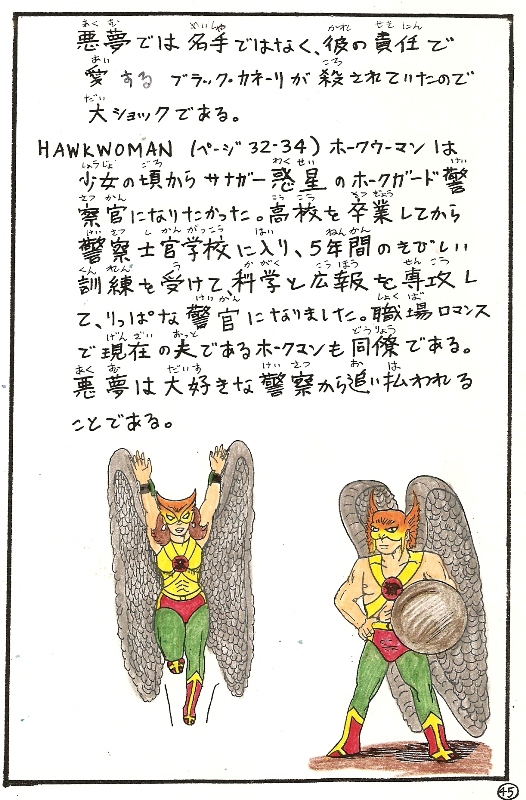 悪夢では名手ではなく、彼の責任で
愛する ブラック・カネーリが殺されていたので
大ショックである。
HAWKWOMAN (ページ32-34) ホークウーマンは
少女の頃からサナガー惑星のホークガード警
察官になりたかった。高校を卒業してから
警察士官学校に入り、5年間のきびしい
訓練を受けて、科学と広報を専攻し
て、りっぱな警官になりました。職場ロマンス
で現在の夫であるホークマンも同僚である。
悪夢は大好きな警察から追い払われる
ことである。
45